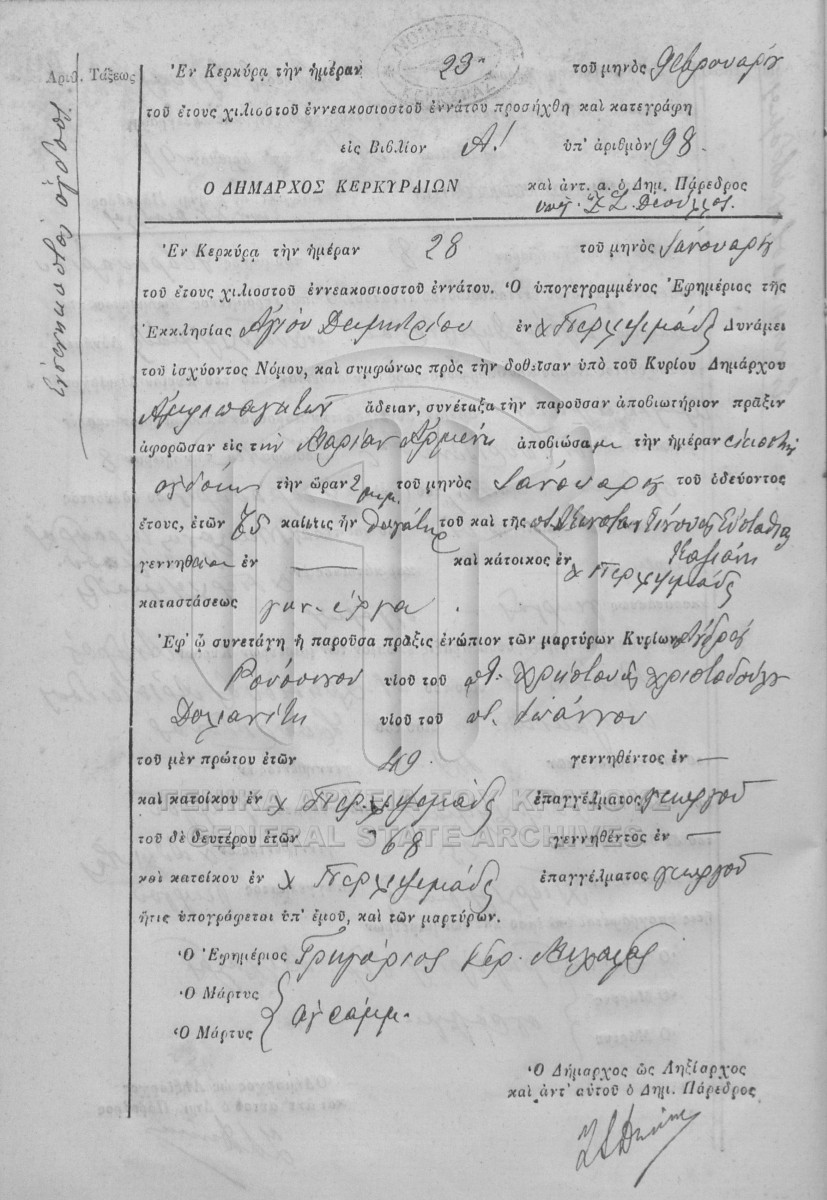 Ἀριθ. Τάξεως
Ἐνενηκοστὸς ὄγδοος
Ἐν Κερκύρᾳ τὴν ἡμέραν 23ην τοῦ μηνὸς Φεβρουαρίου
τοῦ ἔτους χιλιοστοῦ ἐννεακοσιοστοῦ ἐννάτου προσήχθη καὶ κατεγράφη
εἰς Βιβλίον Α! ὑπ' ἀριθμὸν 98.
Ο ΔΗΜΑΡΧΟΣ ΚΕΡΚΥΡΑΙΩΝ
καὶ ἀντ. α. ὁ Δημ. Πάρεδρος
Ἐν Κερκύρᾳ τὴν ἡμέραν 28 τοῦ μηνὸς Ἰανουαρίου
τοῦ ἔτους χιλιοστοῦ ἐννεακοσιοστοῦ ἐννάτου. Ὁ ὑπογεγραμμένος Ἐφημέριος τῆς
Ἐκκλησίας Ἁγίου Δημητρίου ἐν χ Περιχειμάδες Δυνάμει
τοῦ ἰσχύοντος Νόμου, καὶ συμφώνως πρὸς τὴν δοθεῖσαν ὑπὸ τοῦ Κυρίου Δημάρχου
ἄδειαν, συνέταξα τὴν παροῦσαν ἀποβιωτήριον πρᾶξιν
ἀφορῶσαν εἰς τὴν Μαρίαν Ἀρμένη ἀποβιώσα τὴν ἡμέραν εἰκοστὴν
ὀγδόην τὴν ὥραν 2 μ.μ. τοῦ μηνὸς Ἰανουαρίου τοῦ ὁδεύοντος
ἔτους, ἐτῶν 75 καὶ τις ἦν θυγάτηρ τοῦ καὶ τῆς
γεννηθεῖσα ἐν — καὶ κάτοικος ἐν
καταστάσεως γυν. ἔργα.
Ἐφ' ᾧ συνετάγη ἡ παροῦσα πρᾶξις ἐνώπιον τῶν μαρτύρων Κυρίων Ἀνδρέου
υἱοῦ τοῦ ποτ. Χρήστου & Χριστοδούλου
Δολιανίτη υἱοῦ τοῦ ποτ. Ἰωάννου
τοῦ μὲν πρώτου ἐτῶν 49 γεννηθέντος ἐν —
καὶ κατοίκου ἐν χ ἐπαγγέλματος γεωργοῦ
τοῦ δὲ δευτέρου ἐτῶν 68 γεννηθέντος ἐν —
καὶ κατοίκου ἐν χ ἐπαγγέλματος γεωργοῦ
ἥτις ὑπογράφεται ὑπ' ἐμοῦ, καὶ τῶν μαρτύρων.
Ὁ Ἐφημέριος Γρηγόριος ἱερ.
Ὁ Μάρτυς
Ὁ Μάρτυς
ἀγράμμ.
Ὁ Δήμαρχος ὡς Ληξίαρχος
καὶ ἀντ' αὐτοῦ ὁ Δημ. Πάρεδρος
ΓΕΝΙΚΑ ΑΡΧΕΙΑ ΤΟΥ ΚΡΑΤΟΥΣ
GENERAL STATE ARCHIVES